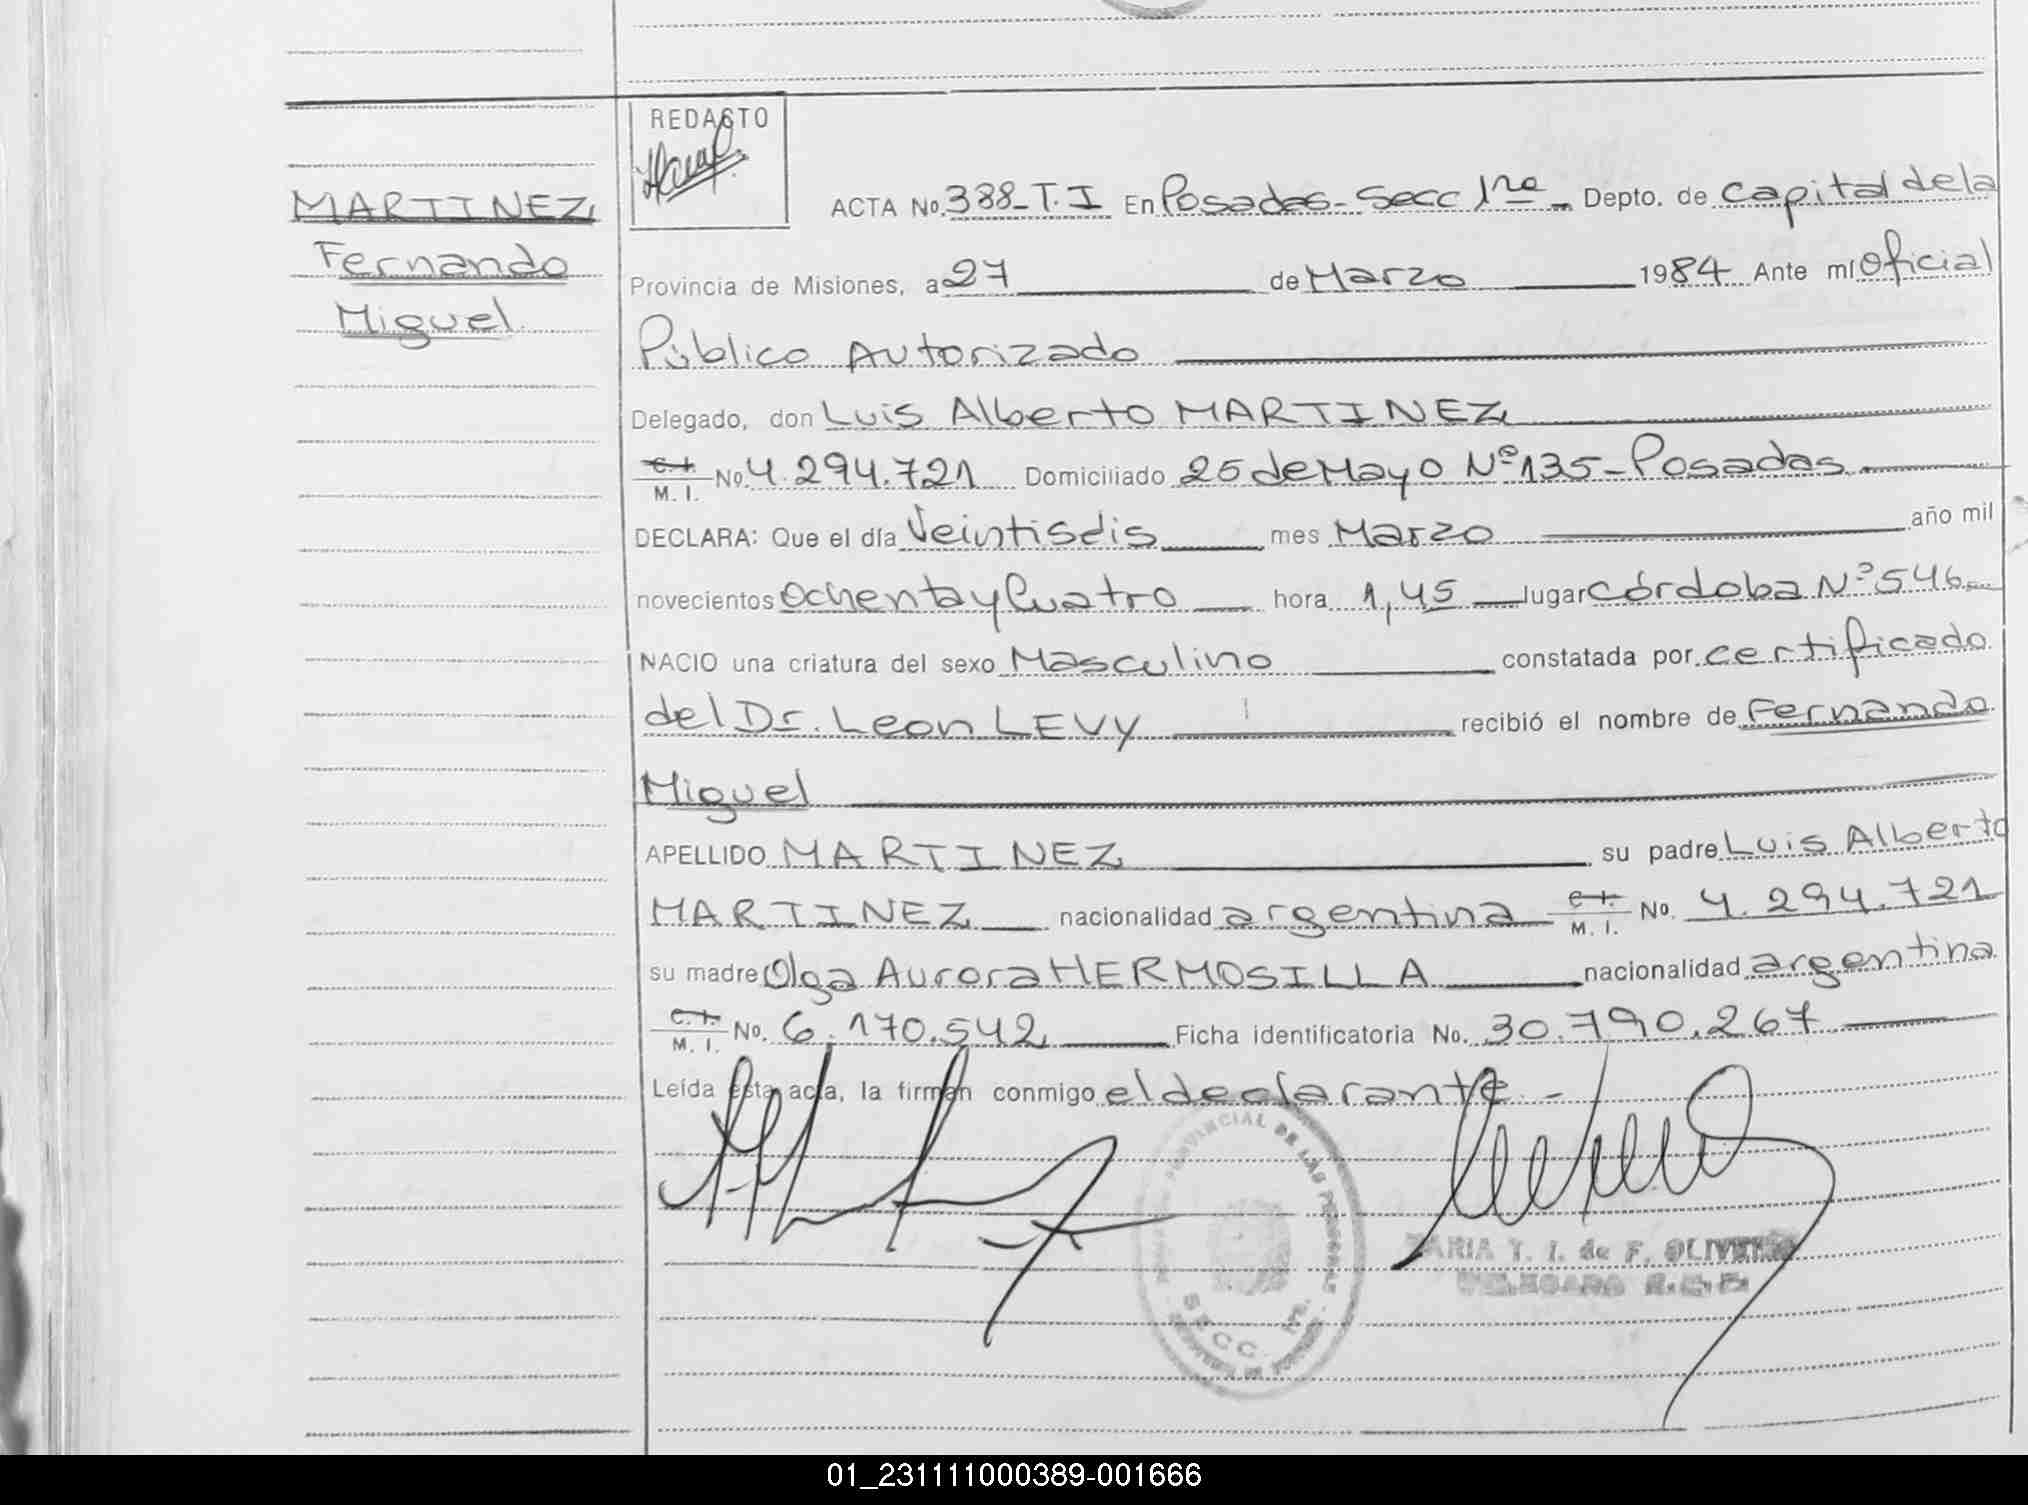 REDACTO
MARTINEZ
Fernando
Miguel
ACTA No. 388-T.I En Posadas-Secc 1ra Depto. de Capital de la
Provincia de Misiones, a 27 de Marzo 1984 Ante mi Oficial
Público Autorizado
Delegado, don Luis Alberto MARTINEZ
C.I.
M. I. No. 4.294.721 Domiciliado 25 de Mayo Nº 135-Posadas
DECLARA: Que el día Veintiséis mes Marzo año mil
novecientos Ochenta y Cuatro hora 1,45 lugar Córdoba Nº 546
NACIO una criatura del sexo Masculino constatada por certificado
del Dr. Leon LEVY recibió el nombre de Fernando
Miguel
APELLIDO MARTINEZ su padre Luis Alberto
MARTINEZ nacionalidad argentina C.I. M. I. No. 4.294.721
su madre Olga Aurora HERMOSILLA nacionalidad argentina
C.I.
M. I. No. 6.170.542 Ficha identificatoria No. 30.790.267
Leída esta acta, la firman conmigo el declarante.-
PROVINCIAL DE LAS PERSONAS
SECC. 1ra.
MARIA T. I. de F. OLIVEIRA
DELEGADO R.C.P.
01_231111000389-001666